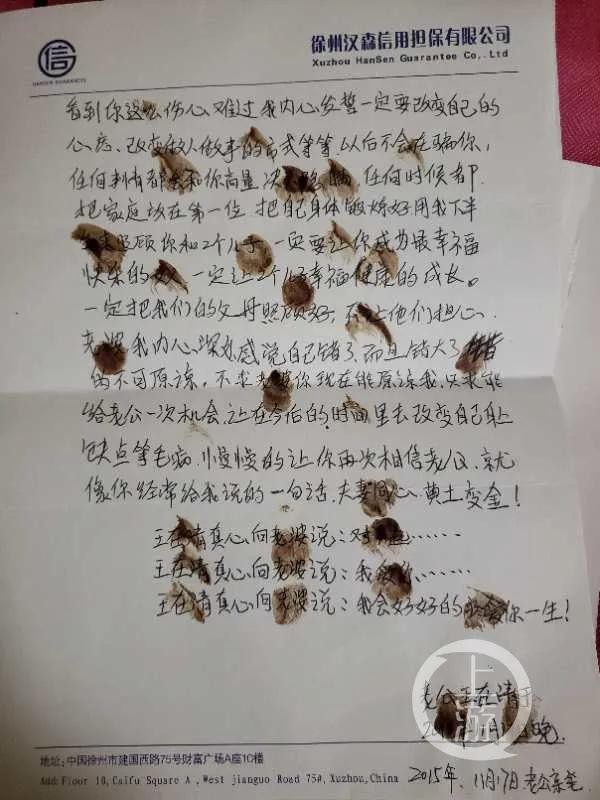 信
HANSEN GUARANTEE
徐州汉森信用担保有限公司
Xuzhou HanSen Guarantee Co,.Ltd
看到你这么伤心难过我内心发誓一定要改变自己的
心态、改变做人做事的方式等等,以后不会在骗你,
任何事情都会和你商量 任何时候都
把家庭放在第一位 把自己身体锻炼好用我下半
照顾你和2个儿子 一定要让你成为最幸福
快乐的 一定让2个儿子幸福健康的成长。
一定把我们的父母照顾好,不让他们担心、
老婆我内心深处感觉自己错了,而且错大了
不可原谅,不求老婆你现在能原谅我,只求能
给老公一次机会,让在今后的时间里去改变自己身上
缺点等毛病,慢慢的让你再次相信老公,就
像你经常给我说的一句话,夫妻同心、黄土变金!
王在清真心向老婆说:对不起……
王在清真心向老婆说:我爱你……
王在清真心向老婆说:我会好好的 你一生!
老公王在清于
晚
2015年、11月17日 老公亲笔
地址:中国徐州市建国西路75号财富广场A座10楼
Add:Floor 10,Caifu Square A ,West jianguo Road 75#,Xuzhou,China
上游